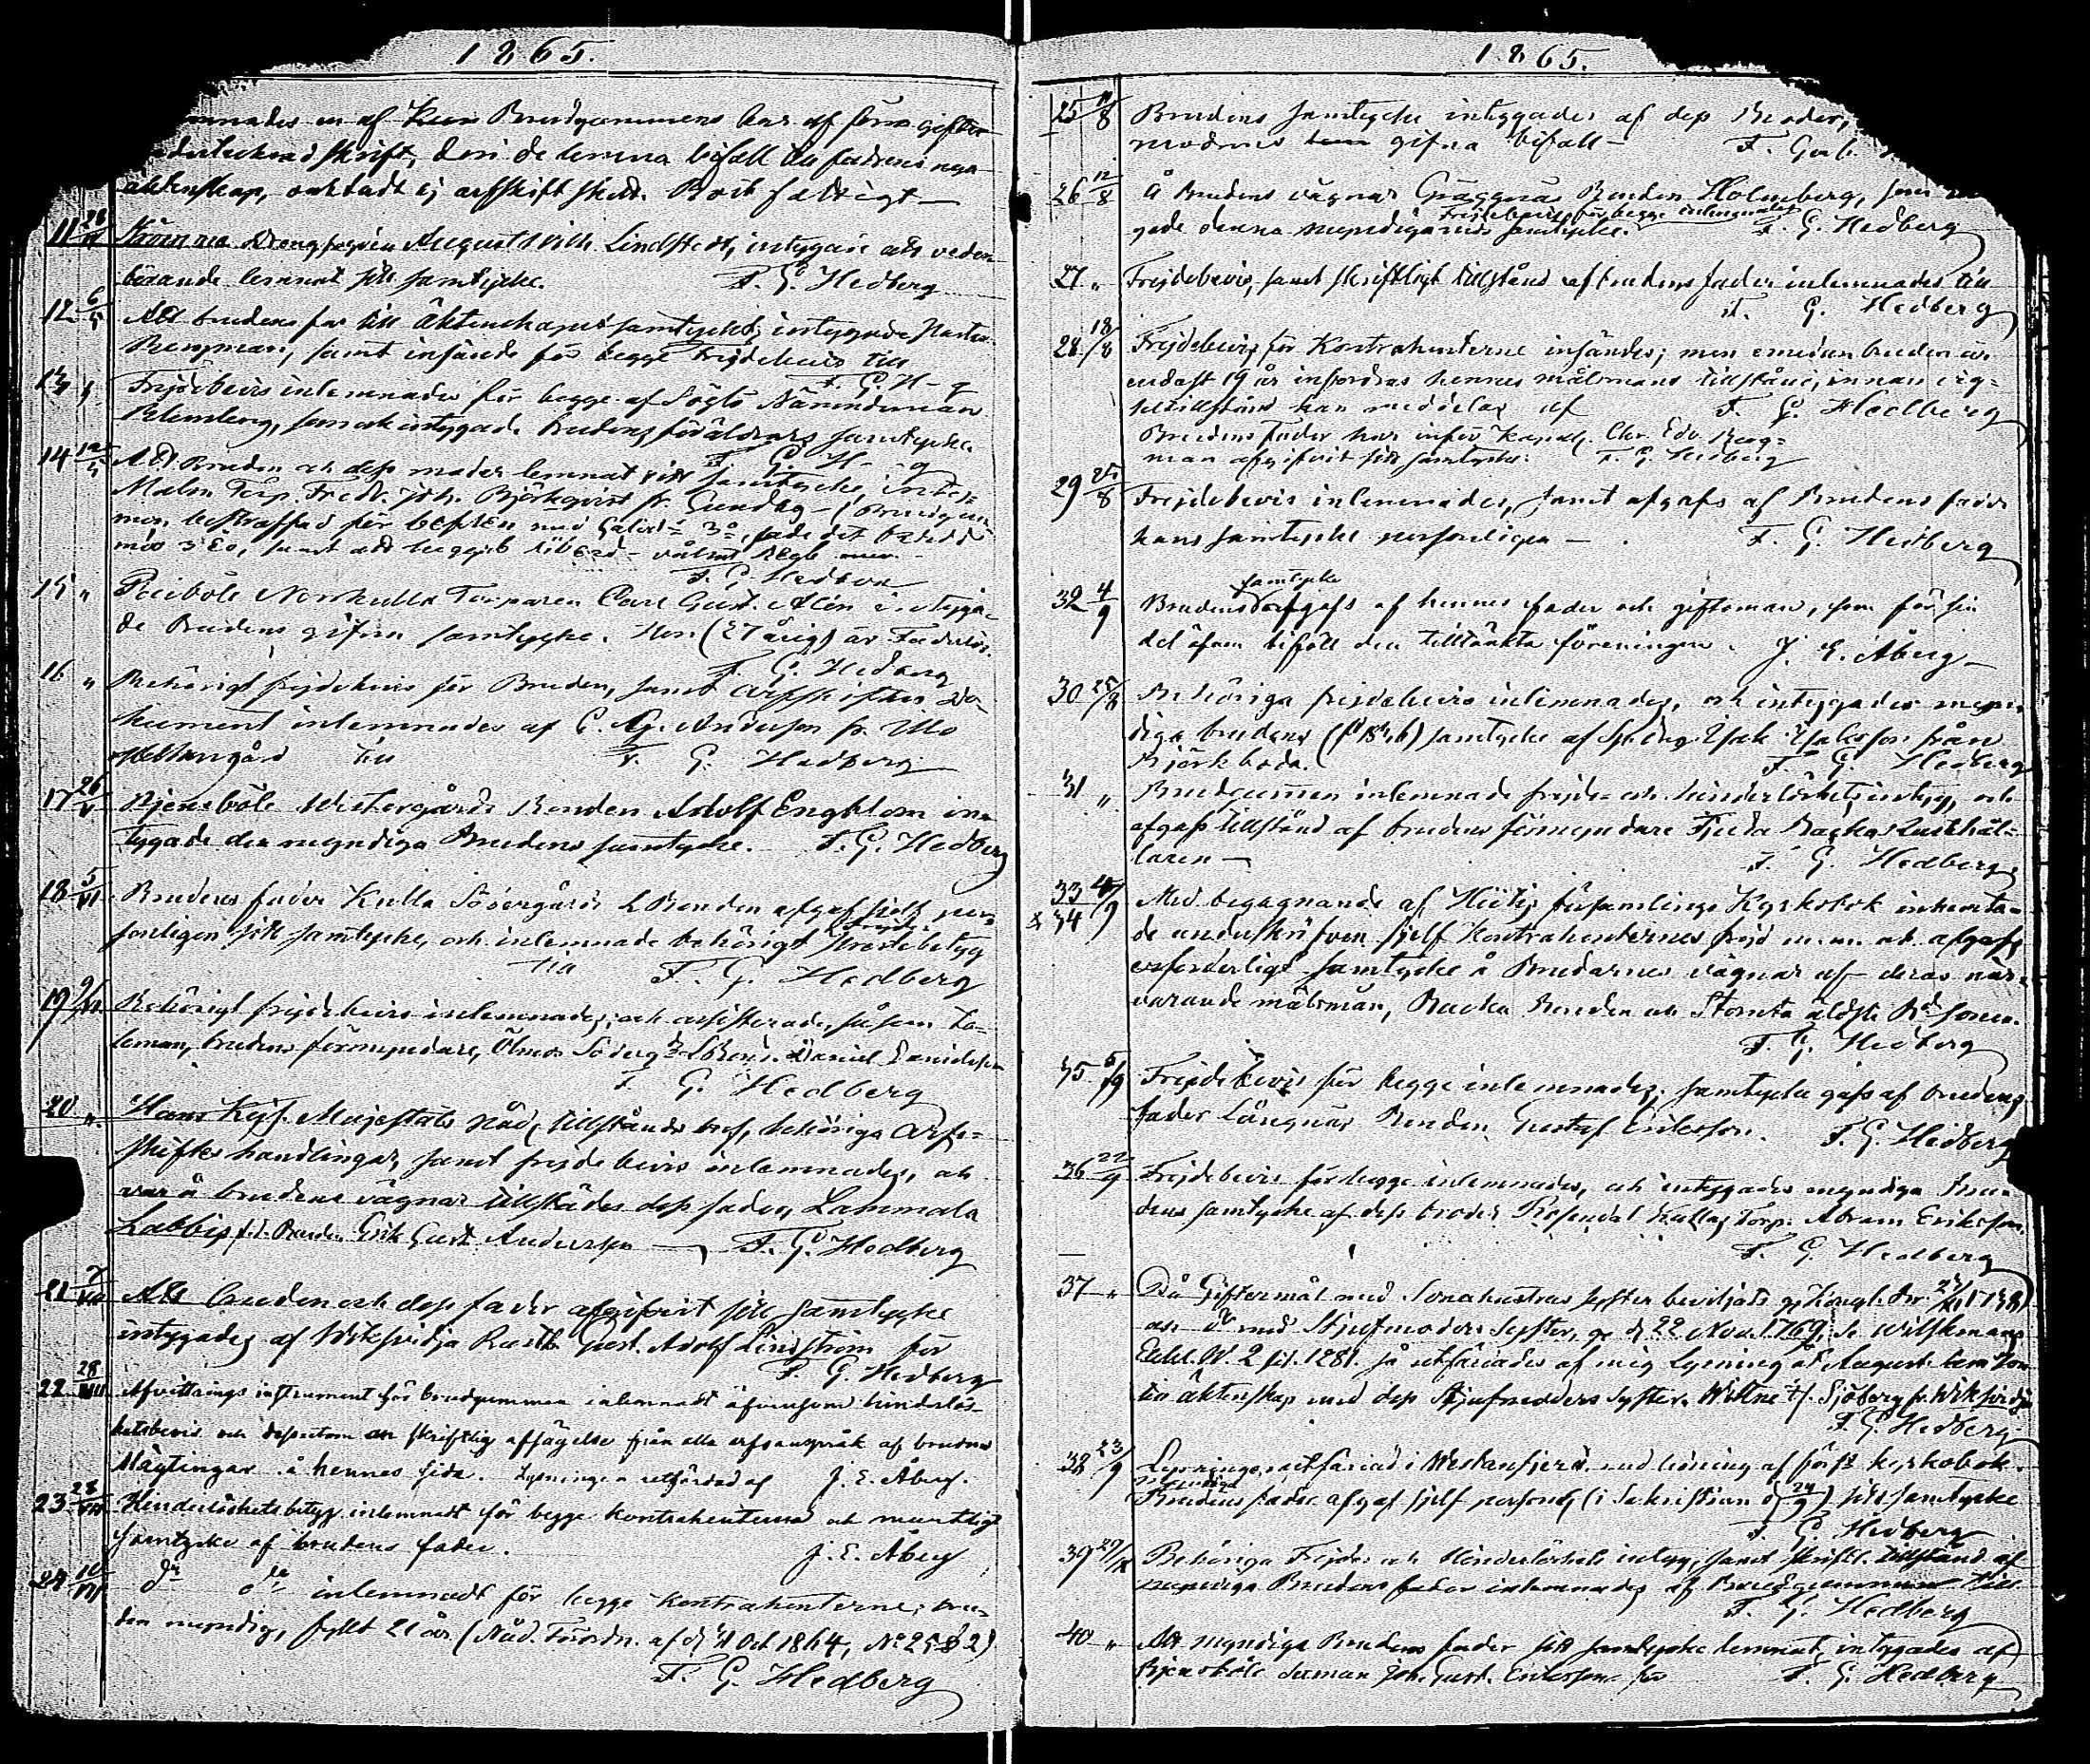 1865.
af Brudgummens af förra gifter
skrift, deri de lemna bifall till fadrens nya
äktenskap, enär arfskift skett. Boet fattigt —
11 28 August Wilh. Lindstedt, intygade att veder-
börande lemnat sitt samtycke. F. G. Hedberg
12 6/5 Att brudens far till äktenskapet samtyckt, intygade
Bergman, samt insände för begge Frejdebevis till
F. G. H-g
13 " Frejdebevis inlemnades för begge af Sögtö Nämndeman
Blomberg, som ock intygade brudens föräldrars samtycke.
F. G. H-g
14 12/5 Att Bruden och dess moder lemnat sitt samtycke, inty-
Malm Torp. Fredr. Joh. Björkqvist fr.
F. G. Hedberg
15 " Norrkulla Torparen Carl Gust. Alén intyga-
de Brudens gifna samtycke. Hon (27 årig) är Faderlös.
F. G. Hedberg
16 " Behörigt frejdebevis för Bruden, samt Arfskiftes Do-
kument inlemnades af C. G. Anderson fr.
till F. G. Hedberg
17 26/V Bjensböle Westergårds Bonden Adolf Engblom in-
tygade den myndiga Brudens samtycke. F. G. Hedberg
18 5/VI Brudens fader Kulla Södergårds Bonden afgaf sjelf per-
sonligen sitt samtycke, och inlemnade behörigt betyg
till F. G. Hedberg
19 9/VI Behörigt frejdebevis inlemnades, och assisterade, såsom ta-
leman, brudens förmyndare, Ölmos Söderg:ds Daniel Danielsson
F. G. Hedberg
20 " Hans Kejs. Majestäts Nåd. tillstånds bref, behöriga Arfs-
skiftes handlingar, samt frejdebevis inlemnades, och
var å brudens vägnar tillstädes dess fader, Lammala
Labbis f.d. Bonden Erik Gust. Andersson — F. G. Hedberg
21 7 Att bruden och dess fader afgifvit sitt samtycke
intygades af Wikspidja Gust. Adolf Lindström för
F. G. Hedberg
22 28/VII Afvittrings instrument för brudgummen inlemnadt äfvensom hinderlös-
hetsbevis och dessutom en skriftlig afsägelse från alla arfsanspråk af brudens
slägtingar å hennes sida. Lysningen utfärdad af J. E. Åberg.
23 28/VII Hinderlöshetsbetyg inlemnadt för begge kontrahenterna och muntligt
samtycke af brudens fader. J. E. Åberg
24 10/VIII d:o d:o inlemnadt för begge kontrahenterne; bru-
den myndig, fyllt 21 år (Nåd. Förordn. af d 31 Oct 1864, N:o 25 § 2)
F. G. Hedberg
1865.
25 11/8 Brudens samtycke intygades af dess Broder,
modrens gifna bifall — F. G.
26 12/8 Å Brudens vägnar Gräggnäs Bonden Holmberg, som
Frejdebevis för begge inlemnades
gade denna myndigas samtycke. F. G. Hedberg
27 " Frejdebevis, samt skriftligt tillstånd af brudens fader inlemnades till
F. G. Hedberg
28 18/8 Frejdebevis för Kontrahenterne insändes; men emedan bruden är
endast 19 år infordras hennes målsmans tillstånd, innan vig-
seltillstånd kan meddelas af F. G. Hedberg
Brudens fader har inför Kapell. Chr. Edv. Berg-
man afgifvit sitt samtycke. F. G. Hedberg
29 25/8 Frejdebevis inlemnades, samt afgafs af Brudens fader
hans samtycke personligen — . F. G. Hedberg
samtycke
32 4/9 Brudens afgafs af hennes fader och giftoman, som för sin
del äfven biföll den tilltänkta föreningen. J. E. Åberg —
30 25/8 Behöriga frejdebevis inlemnades, och intygades myn-
diga brudens samtycke af Isak Isaksson från
Björkboda. F. G. Hedberg
31 " Brudgummen inlemnade frejde- och hinderlöshetsintyg, och
afgafs tillstånd af brudens förmyndare Backas Rusthål-
laren — F. G. Hedberg
33 4/9
& 34 Med begagnande af Hitis församlings Kyrkobok inhemta-
de underskrifven sjelf Kontrahenternes frejd m.m. och afgafs
erforderligt samtycke å Brudarnes vägnar af deras när-
varande målsmän, Backa Bonden och Stomta äldste Bd sonen.
F. G. Hedberg
35 5/9 Frejdebevis för begge inlemnades; samtycke gafs af brudens
fader Långnäs Bonden Gustaf Eriksson. F. G. Hedberg
36 22/9 Frejdebevis för begge inlemnades, och intygades myndiga Bru-
dens samtycke af dess broder Rosendal Kullas Torp. Abram Eriksson.
F. G. Hedberg
37 " Då Giftermål med Sonahustrus syster beviljats g. Kongl. Br. 1738
och d:o med Stjufmoders Syster, g. d. 22 Nov. 1769, se Wilskmans
Eccl. W. 2 sid. 1281. så utfärdades af mig Lysning åt August
till äktenskap med dess Stjufmoders Syster. Wilhne Sjöberg fr. Wikspidja
F. G. Hedberg
38 23/9 Lysningen utfärdad i Westanfjerd med ledning af förs:s kyrkobok.
Myndiga
Brudens fader afgaf sjelf personl. (i Sakristian d 24/9) sitt samtycke
F. G. Hedberg
39 29/9 Behöriga Frejde- och Hinderlöshets intyg, samt skriftl. tillstånd af
myndiga Brudens fader inlemnades af Brudgummen till
F. G. Hedberg
40 " Att myndiga Brudens fader sitt samtycke lemnat, intygades af
Bjensböle Joh. Gust. Eriksson för F. G. Hedberg